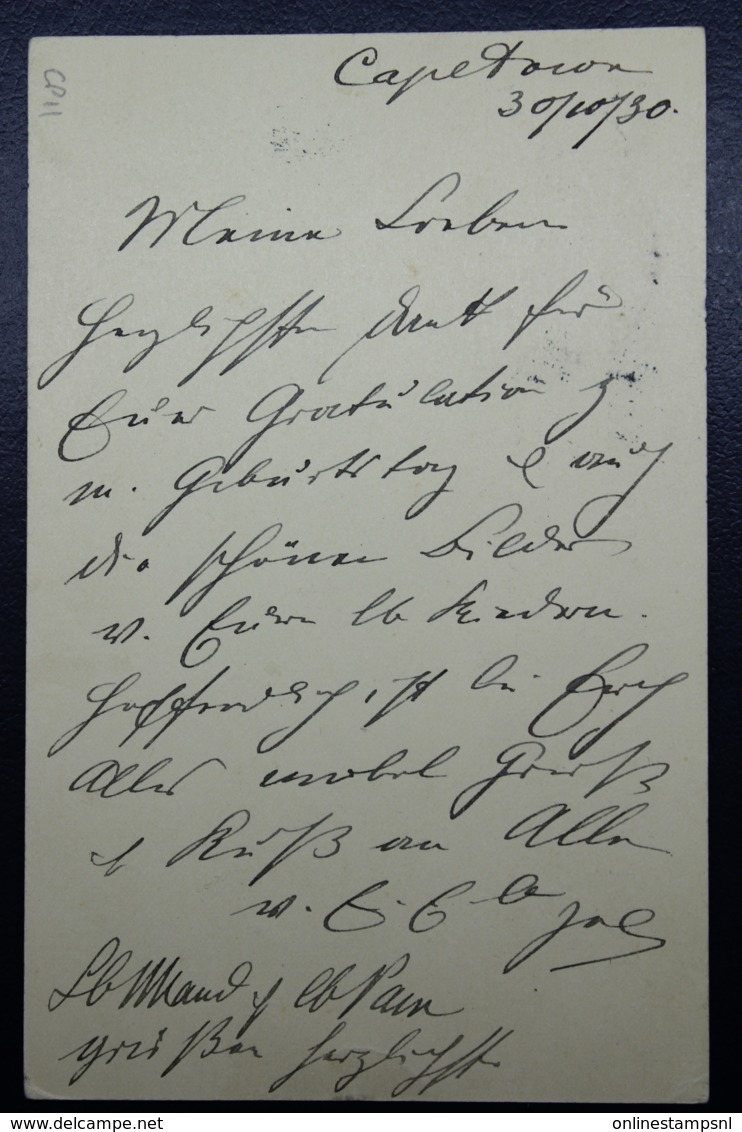 CP11
Capetown
30/10/30.
Meine Lieben
Herzlichsten Dank für
Eure Gratulation z
m. Geburtstag & auch
die schönen Bilder
v. Euren lb Kindern.
Hoffendlich ist bei Euch
Alles mobel Gruß
& Kuß an Alle
v. E. E. lb
Lb & lb
grüßen herzlichst
onlinestampsnl